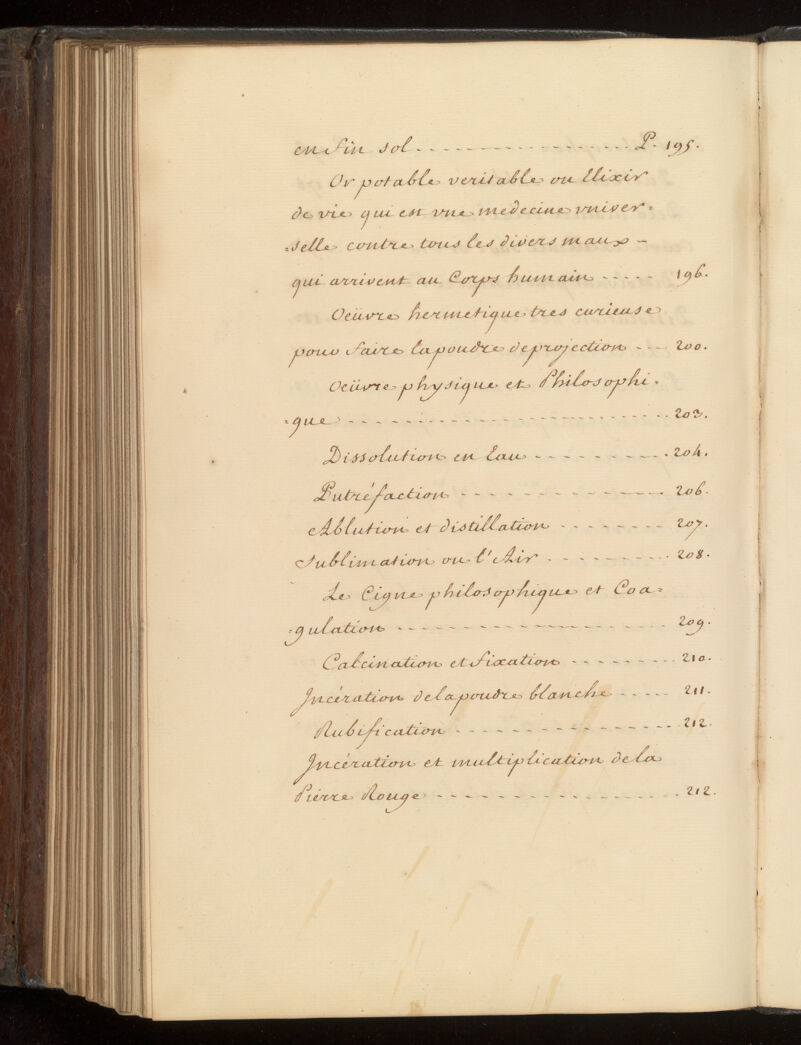 en fin sol - - - - - - - - - - - - - - - - - P. 195.
Or potable veritable ou Elixir
de vie qui est vne medecine vniver=
=selle contre tous les divers maux -
qui arrivent au Corps humain - - - - - 196.
Oeüvre hermetique tres curieuse
pour faire la poudre de projection - - - 200.
Oeüvre physique et Philosophi=
=que - - - - - - - - - - - - - - - - - - - - - - 203.
Dissolution en Eau - - - - - - - - - - 204.
Putréfaction - - - - - - - - - - - - - - 206.
Ablution et distillation - - - - - - - - 207.
Sublimation ou l'Air - - - - - - - - - 208.
Le Cigne philosophique et Coa=
=gulation - - - - - - - - - - - - - - - - - - 209.
Calcination et fixation - - - - - - - - 210.
Jncération de la poudre blanche - - - - - 211.
Rubification - - - - - - - - - - - - - - - 212.
Jncération et multiplication de la
Pierre Rouge - - - - - - - - - - - - - - - - 212.